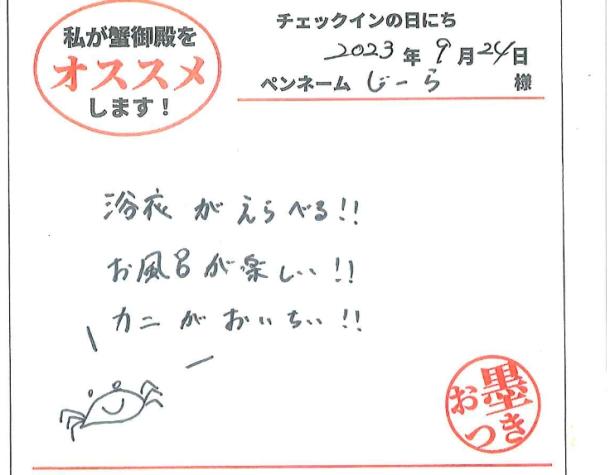 私が蟹御殿を
オススメ
します！
チェックインの日にち
2023年9月24日
ペンネーム じーら 様
浴衣がえらべる!!
お風呂が楽しい!!
カニがおいちい!!
お墨
つき